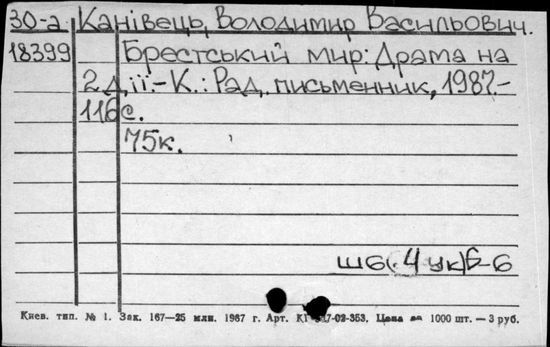 30-а Канівець, Володимир Васильович.
18399 Брестський мир: Драма на
2 дії.- К.: Рад. письменник, 1987.-
116с.
75к.
Ш6(4Ук)6-6
Киев. тип. № 1. Зак. 167—25 млн. 1967 г. Арт. КГ 317-02-353. Цена за 1000 шт. — 3 руб.